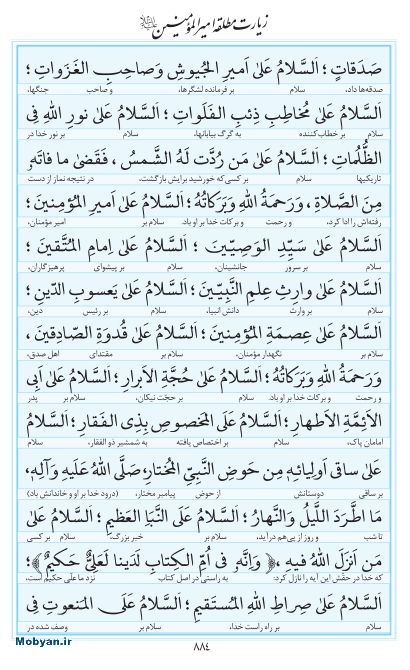 زیارت مطلقه امیرالمؤمنین علیه‌السلام
صَدَقاتٍ ؛ اَلسَّلامُ عَلیٰ اَمیرِ الجُیوشِ وَصاحِبِ الغَزَواتِ ؛
صدقه‌ها داد، سلام بر فرمانده لشگرها، و صاحب جنگها،
اَلسَّلامُ عَلیٰ مُخاطِبِ ذِئبِ الفَلَواتِ ؛ اَلسَّلامُ عَلیٰ نورِ اللهِ فِی
سلام بر خطاب‌کننده به گرگ بیابانها، سلام بر نور خدا در
الظُّلُماتِ ؛ اَلسَّلامُ عَلیٰ مَن رُدَّت لَهُ الشَّمسُ ، فَقَضیٰ ما فاتَهٗ
تاریکیها سلام بر کسی‌که خورشید برایش بازگشت، در نتیجه نماز از دست
مِنَ الصَّلاةِ ، وَرَحمَةُ اللهِ وَبَرَکاتُهٗ ؛ اَلسَّلامُ عَلیٰ اَمیرِ المُؤمِنینَ ؛
رفته‌اش را ادا کرد، و رحمت و برکات خدا بر او باد. سلام بر امیر مؤمنان،
اَلسَّلامُ عَلیٰ سَیِّدِ الوَصِیّینَ ؛ اَلسَّلامُ عَلیٰ اِمامِ المُتَّقینَ ؛
سلام بر سرور جانشینان، سلام بر پیشوای پرهیزگاران،
اَلسَّلامُ عَلیٰ وارِثِ عِلمِ النَّبِیّینَ ؛ اَلسَّلامُ عَلیٰ یَعسوبِ الدّینِ ؛
سلام بر وارث دانش انبیا، سلام بر رئیس دین،
اَلسَّلامُ عَلیٰ عِصمَةِ المُؤمِنینَ ؛ اَلسَّلامُ عَلیٰ قُدوَةِ الصّادِقینَ ،
سلام بر نگهدار مؤمنان، سلام بر مقتدای اهل صدق،
وَرَحمَةُ اللهِ وَبَرَکاتُهٗ ؛ اَلسَّلامُ عَلیٰ حُجَّةِ الاَبرارِ ؛ اَلسَّلامُ عَلیٰ اَبِی
و رحمت و برکات خدا بر او باد. سلام بر حجّت نیکان، سلام بر پدر
الاَئِمَّةِ الاَطهارِ ؛ اَلسَّلامُ عَلَی المَخصوصِ بِذِی الفَقارِ ؛ اَلسَّلامُ
امامان پاک، سلام بر اختصاص یافته به شمشیر ذو الفقار، سلام
عَلیٰ ساقی اَولِیائِهٖ مِن حَوضِ النَّبِیِّ المُختارِ، صَلَّی اللهُ عَلَیهِ وَآلِهٖ،
بر ساقی دوستانش از حوض پیامبر مختار، (درود خدا بر او و خاندانش باد)
مَا اطَّرَدَ اللَّیلُ وَالنَّهارُ ؛ اَلسَّلامُ عَلَی النَّبَاِ العَظیمِ ؛ اَلسَّلامُ عَلیٰ
تا شب و روز از پی‌هم درآید، سلام بر خبر بزرگ، سلام بر کسی
مَن اَنزَلَ اللهُ فیهِ ، ﴿وَاِنَّهٗ فی اُمِّ الکِتابِ لَدَینا لَعَلِیٌّ حَکیمٌ﴾ ؛
که خدا در حقّش این آیه را نازل کرد: به راستی در اصل کتاب نزد ما علی حکیم است.
اَلسَّلامُ عَلیٰ صِراطِ اللهِ المُستَقیمِ ؛ اَلسَّلامُ عَلَی المَنعوتِ فِی
سلام بر راه راست خدا، سلام بر وصف شده در
۸۸۴
Mobyan.ir